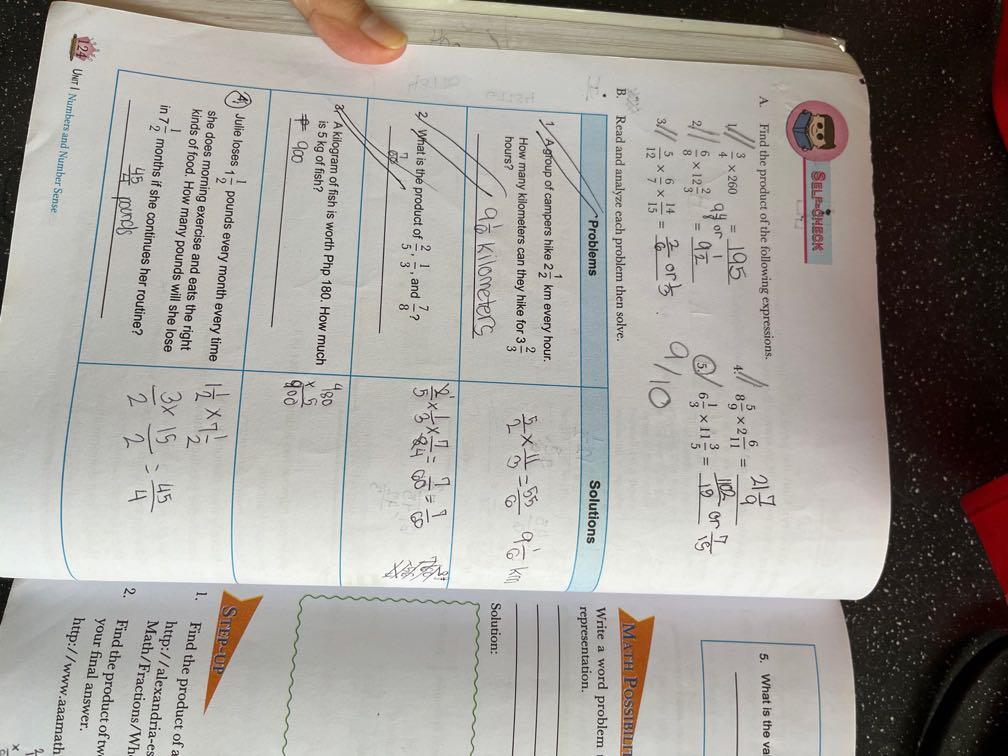 SELF-CHECK
A. Find the product of the following expressions.
1. 3/4 × 260 = 195
2. 6/8 × 12 2/3 = 9 1/2
3. 5/12 × 6/7 × 14/15 = 2/6 or 1/3
4. 8 5/9 × 2 6/11 = 21 7/9
5. 6 1/3 × 11 3/5 = or 7/15
9/10
B. Read and analyze each problem then solve.
Problems
Solutions
1. A group of campers hike 2 1/2 km every hour.
How many kilometers can they hike for 3 2/3
hours?
9 1/6 kilometers
5/2 × 11/3 = 55/6 9 1/6 km
2. What is the product of 2/5, 1/3, and 7/8?
7/60
= 7/60 = 7/60
3. A kilogram of fish is worth Php 180. How much
is 5 kg of fish?
₱ 900
180
× 5
900
4. Julie loses 1 1/2 pounds every month every time
she does morning exercise and eats the right
kinds of food. How many pounds will she lose
in 7 1/2 months if she continues her routine?
45/4 pounds
1 1/2 × 7 1/2
3/2 × 15/2 = 45/4
124 UNIT I Numbers and Number Sense
5. What is the va
MATH POSSIBILI
Write a word problem
representation.
Solution:
STEP-UP
1. Find the product of a
http://alexandria-es
Math/Fractions/Wh
2. Find the product of tw
your final answer.
http://www.aaamath